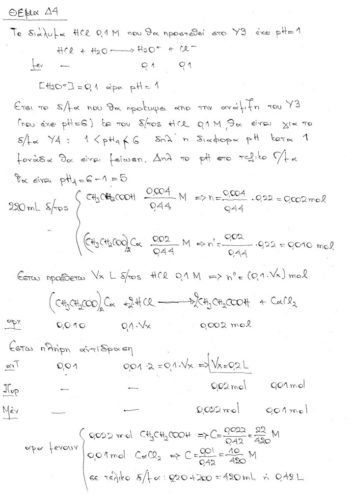 ΘΕΜΑ Δ4
Το διάλυμα HCl 0,1 M που θα προστεθεί στο Υ3 έχει pH=1
HCl + H₂O → H₃O⁺ + Cl⁻
μεν – 0,1 0,1
[H₃O⁺]=0,1 άρα pH = 1
Έτσι το δ/μα που θα προκύψει από την ανάμιξη του Υ3
(που έχει pH=6) με του δ/τος HCl 0,1 M, θα είναι για το
δ/μα Υ4 : 1 < pH₄ < 6 δηλ' η διαφορά pH κατά 1
μονάδα θα είναι μείωση. Δηλ το pH στο τελικό δ/μα
θα είναι pH₄=6-1=5
220 mL δ/τος
CH₃CH₂COOH 0,004/0,44 M => n=0,004/0,44 · 0,22=0,002 mol
(CH₃CH₂COO)₂Ca 0,02/0,44 M => n'=0,02/0,44 · 0,22=0,010 mol
Έστω προσθέτω Vx L δ/τος HCl 0,1 M => n''=(0,1·Vx) mol
(CH₃CH₂COO)₂Ca + 2HCl → 2CH₃CH₂COOH + CaCl₂
αρχ 0,010 0,1·Vx 0,002 mol
Έστω πλήρη αντίδραση
αντ 0,01 0,01·2=0,1·Vx => Vx=0,2 L
Παρ – – 0,02 mol 0,01 mol
Μέν – – 0,022 mol 0,01 mol
άρα μένουν
0,022 mol CH₃CH₂COOH => C=0,022/0,42=22/420 M
0,01 mol CaCl₂ => C=0,01/0,42=10/420 M
σε τελικό δ/μα: 220+200=420 mL ή 0,42 L